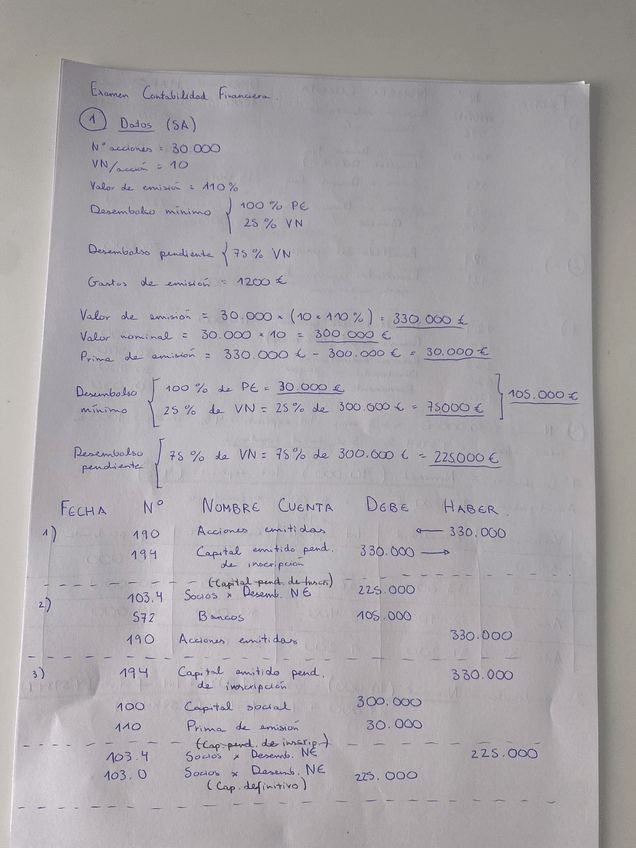 Examen Contabilidad Financiera.
1 Datos (SA)
Nº acciones = 30.000
VN/acción = 10
Valor de emisión = 110%
Desembolso mínimo { 100% PE
25% VN
Desembolso pendiente { 75% VN
Gastos de emisión = 1200 €
Valor de emisión = 30.000 × (10 × 110%) = 330.000 €
Valor nominal = 30.000 × 10 = 300.000 €
Prima de emisión = 330.000 € - 300.000 € = 30.000 €
Desembolso mínimo [ 100% de PE = 30.000 €
25% de VN = 25% de 300.000 € = 75000 € ] 105.000 €
Desembolso pendiente [ 75% de VN = 75% de 300.000 € = 225000 €
FECHA Nº NOMBRE CUENTA DEBE HABER
1) 190 Acciones emitidas ← 330.000
194 Capital emitido pend. 330.000 →
de inscripción
(Capital pend. de Inscri)
2) 103.4 Socios × Desemb. NE 225.000
572 Bancos 105.000
190 Acciones emitidas 330.000
3) 194 Capital emitido pend. 330.000
de inscripción
100 Capital social 300.000
110 Prima de emisión 30.000
(Cap. pend. de inscrip.)
103.4 Socios × Desemb. NE 225.000
103.0 Socios × Desemb. NE 225.000
(Cap. definitivo)